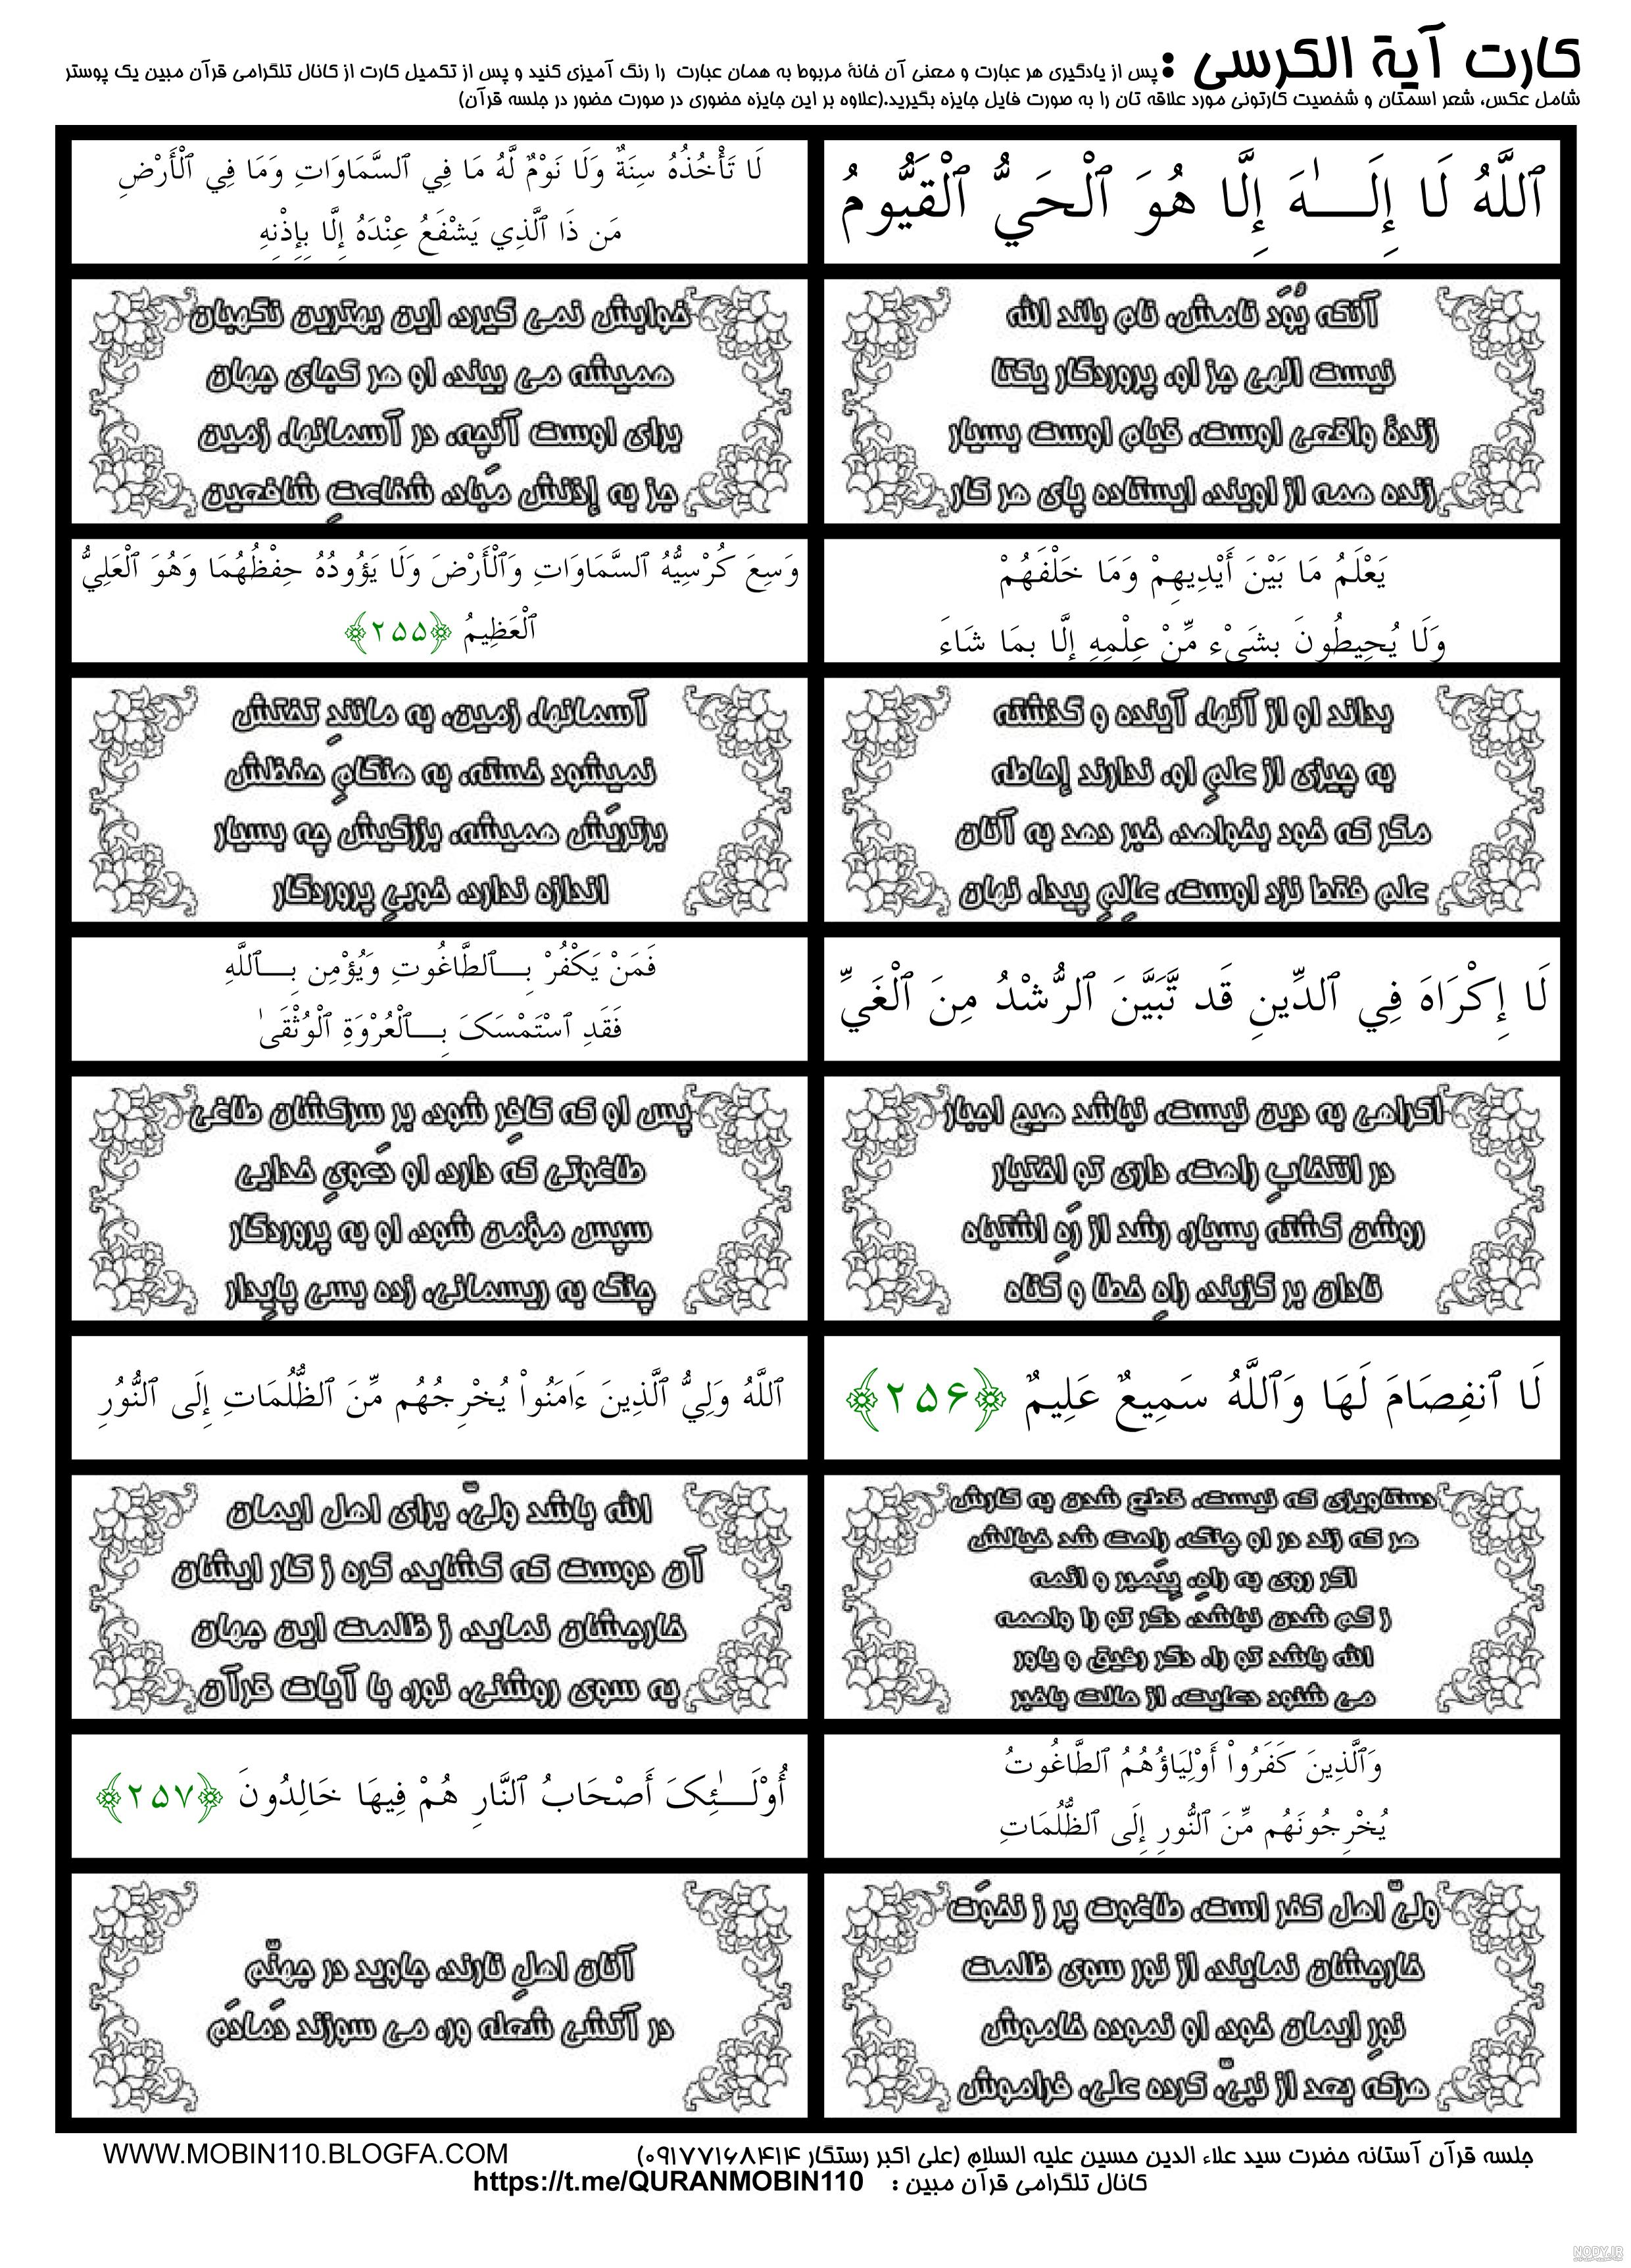 کارت آیة الکرسی : پس از یادگیری هر عبارت و معنی آن خانهٔ مربوط به همان عبارت را رنگ آمیزی کنید و پس از تکمیل کارت از کانال تلگرامی قرآن مبین یک پوستر
شامل عکس، شعر اسمتان و شخصیت کارتونی مورد علاقه تان را به صورت فایل جایزه بگیرید.(علاوه بر این جایزه حضوری در صورت حضور در جلسه قرآن)
ٱللَّهُ لَا إِلَـٰهَ إِلَّا هُوَ ٱلْحَيُّ ٱلْقَيُّومُ
لَا تَأْخُذُهُ سِنَةٌ وَلَا نَوْمٌ لَّهُ مَا فِي ٱلسَّمَاوَاتِ وَمَا فِي ٱلْأَرْضِ
مَن ذَا ٱلَّذِي يَشْفَعُ عِنْدَهُ إِلَّا بِإِذْنِهِ
آنکه بُوَد نامش، نام بلند الله
نیست الهی جز او، پروردگار یکتا
زندهٔ واقعی اوست، قیام اوست بسیار
زنده همه از اویند، ایستاده پای هر کار
خوابش نمی گیرد، این بهترین نگهبان
همیشه می بیند، او هر کجای جهان
برای اوست آنچه، در آسمانها، زمین
جز به إذنش مَباد، شفاعتِ شافعین
يَعْلَمُ مَا بَيْنَ أَيْدِيهِمْ وَمَا خَلْفَهُمْ
وَلَا يُحِيطُونَ بِشَيْءٍ مِّنْ عِلْمِهِ إِلَّا بِمَا شَاءَ
وَسِعَ كُرْسِيُّهُ ٱلسَّمَاوَاتِ وَٱلْأَرْضَ وَلَا يَؤُودُهُ حِفْظُهُمَا وَهُوَ ٱلْعَلِيُّ
ٱلْعَظِيمُ ﴿۲۵۵﴾
بداند او از آنها، آینده و گذشته
به چیزی از علمِ او، ندارند إحاطه
مگر که خود بخواهد، خبر دهد به آنان
علم فقط نزد اوست، عالِمِ پیدا، نهان
آسمانها، زمین، به مانندِ تختش
نمیشود خسته، به هنگامِ حفظش
برتریَش همیشه، بزرگیش چه بسیار
اندازه ندارد، خوبیِ پروردگار
لَا إِكْرَاهَ فِي ٱلدِّينِ قَد تَّبَيَّنَ ٱلرُّشْدُ مِنَ ٱلْغَيِّ
فَمَنْ يَكْفُرْ بِـٱلطَّاغُوتِ وَيُؤْمِن بِـٱللَّهِ
فَقَدِ ٱسْتَمْسَکَ بِـٱلْعُرْوَةِ ٱلْوُثْقَىٰ
اکراهی به دین نیست، نباشد هیچ اجبار
در انتخابِ راهت، داری تو اختیار
روشن گشته بسیار، رشد از رَهِ اشتباه
نادان بر گزیند، راهِ خطا و گناه
پس او که کافِر شود، بر سرکشان طاغی
طاغوتی که دارد، او دَعویِ خدایی
سپس مؤمن شود، او به پروردگار
چنگ به ریسمانی، زده بسی پایِدار
لَا ٱنفِصَامَ لَهَا وَٱللَّهُ سَمِيعٌ عَلِيمٌ ﴿۲۵۶﴾
ٱللَّهُ وَلِيُّ ٱلَّذِينَ ءَامَنُواْ يُخْرِجُهُم مِّنَ ٱلظُّلُمَاتِ إِلَى ٱلنُّورِ
دستاویزی که نیست، قطع شدن به کارش
هر که زند در او چنگ، راحت شد خیالش
اگر روی به راهِ، پیَمبر و ائمه
ز گم شدن نباشد، دگر تو را واهمه
الله باشد تو را، دگر رفیق و یاور
می شنود دعایت، از حالت باخبر
الله باشد ولیّ، برای اهل ایمان
آن دوست که گشاید، گره ز کار ایشان
خارجشان نماید، ز ظلمت این جهان
به سوی روشنی، نور، با آیات قرآن
وَٱلَّذِينَ كَفَرُواْ أَوْلِيَاؤُهُمُ ٱلطَّاغُوتُ
يُخْرِجُونَهُم مِّنَ ٱلنُّورِ إِلَى ٱلظُّلُمَاتِ
أُوْلَـٰئِکَ أَصْحَابُ ٱلنَّارِ هُمْ فِيهَا خَالِدُونَ ﴿۲۵۷﴾
ولیّ اهل کفر است، طاغوت پر ز نخوَت
خارجشان نمایند، از نور سوی ظلمت
نورِ ایمان خود، او نموده خاموش
هرکه بعد از نبیّ، کرده علی، فراموش
آنان اهلِ نارند، جاوید در جهنّم
در آتشی شعله ور، می سوزند دَمادَم
جلسه قرآن آستانه حضرت سید علاء الدین حسین علیه السلام (علی اکبر رستگار ۰۹۱۷۷۱۶۸۴۱۴) WWW.MOBIN110.BLOGFA.COM
کانال تلگرامی قرآن مبین : https://t.me/QURANMOBIN110
NODY.IR